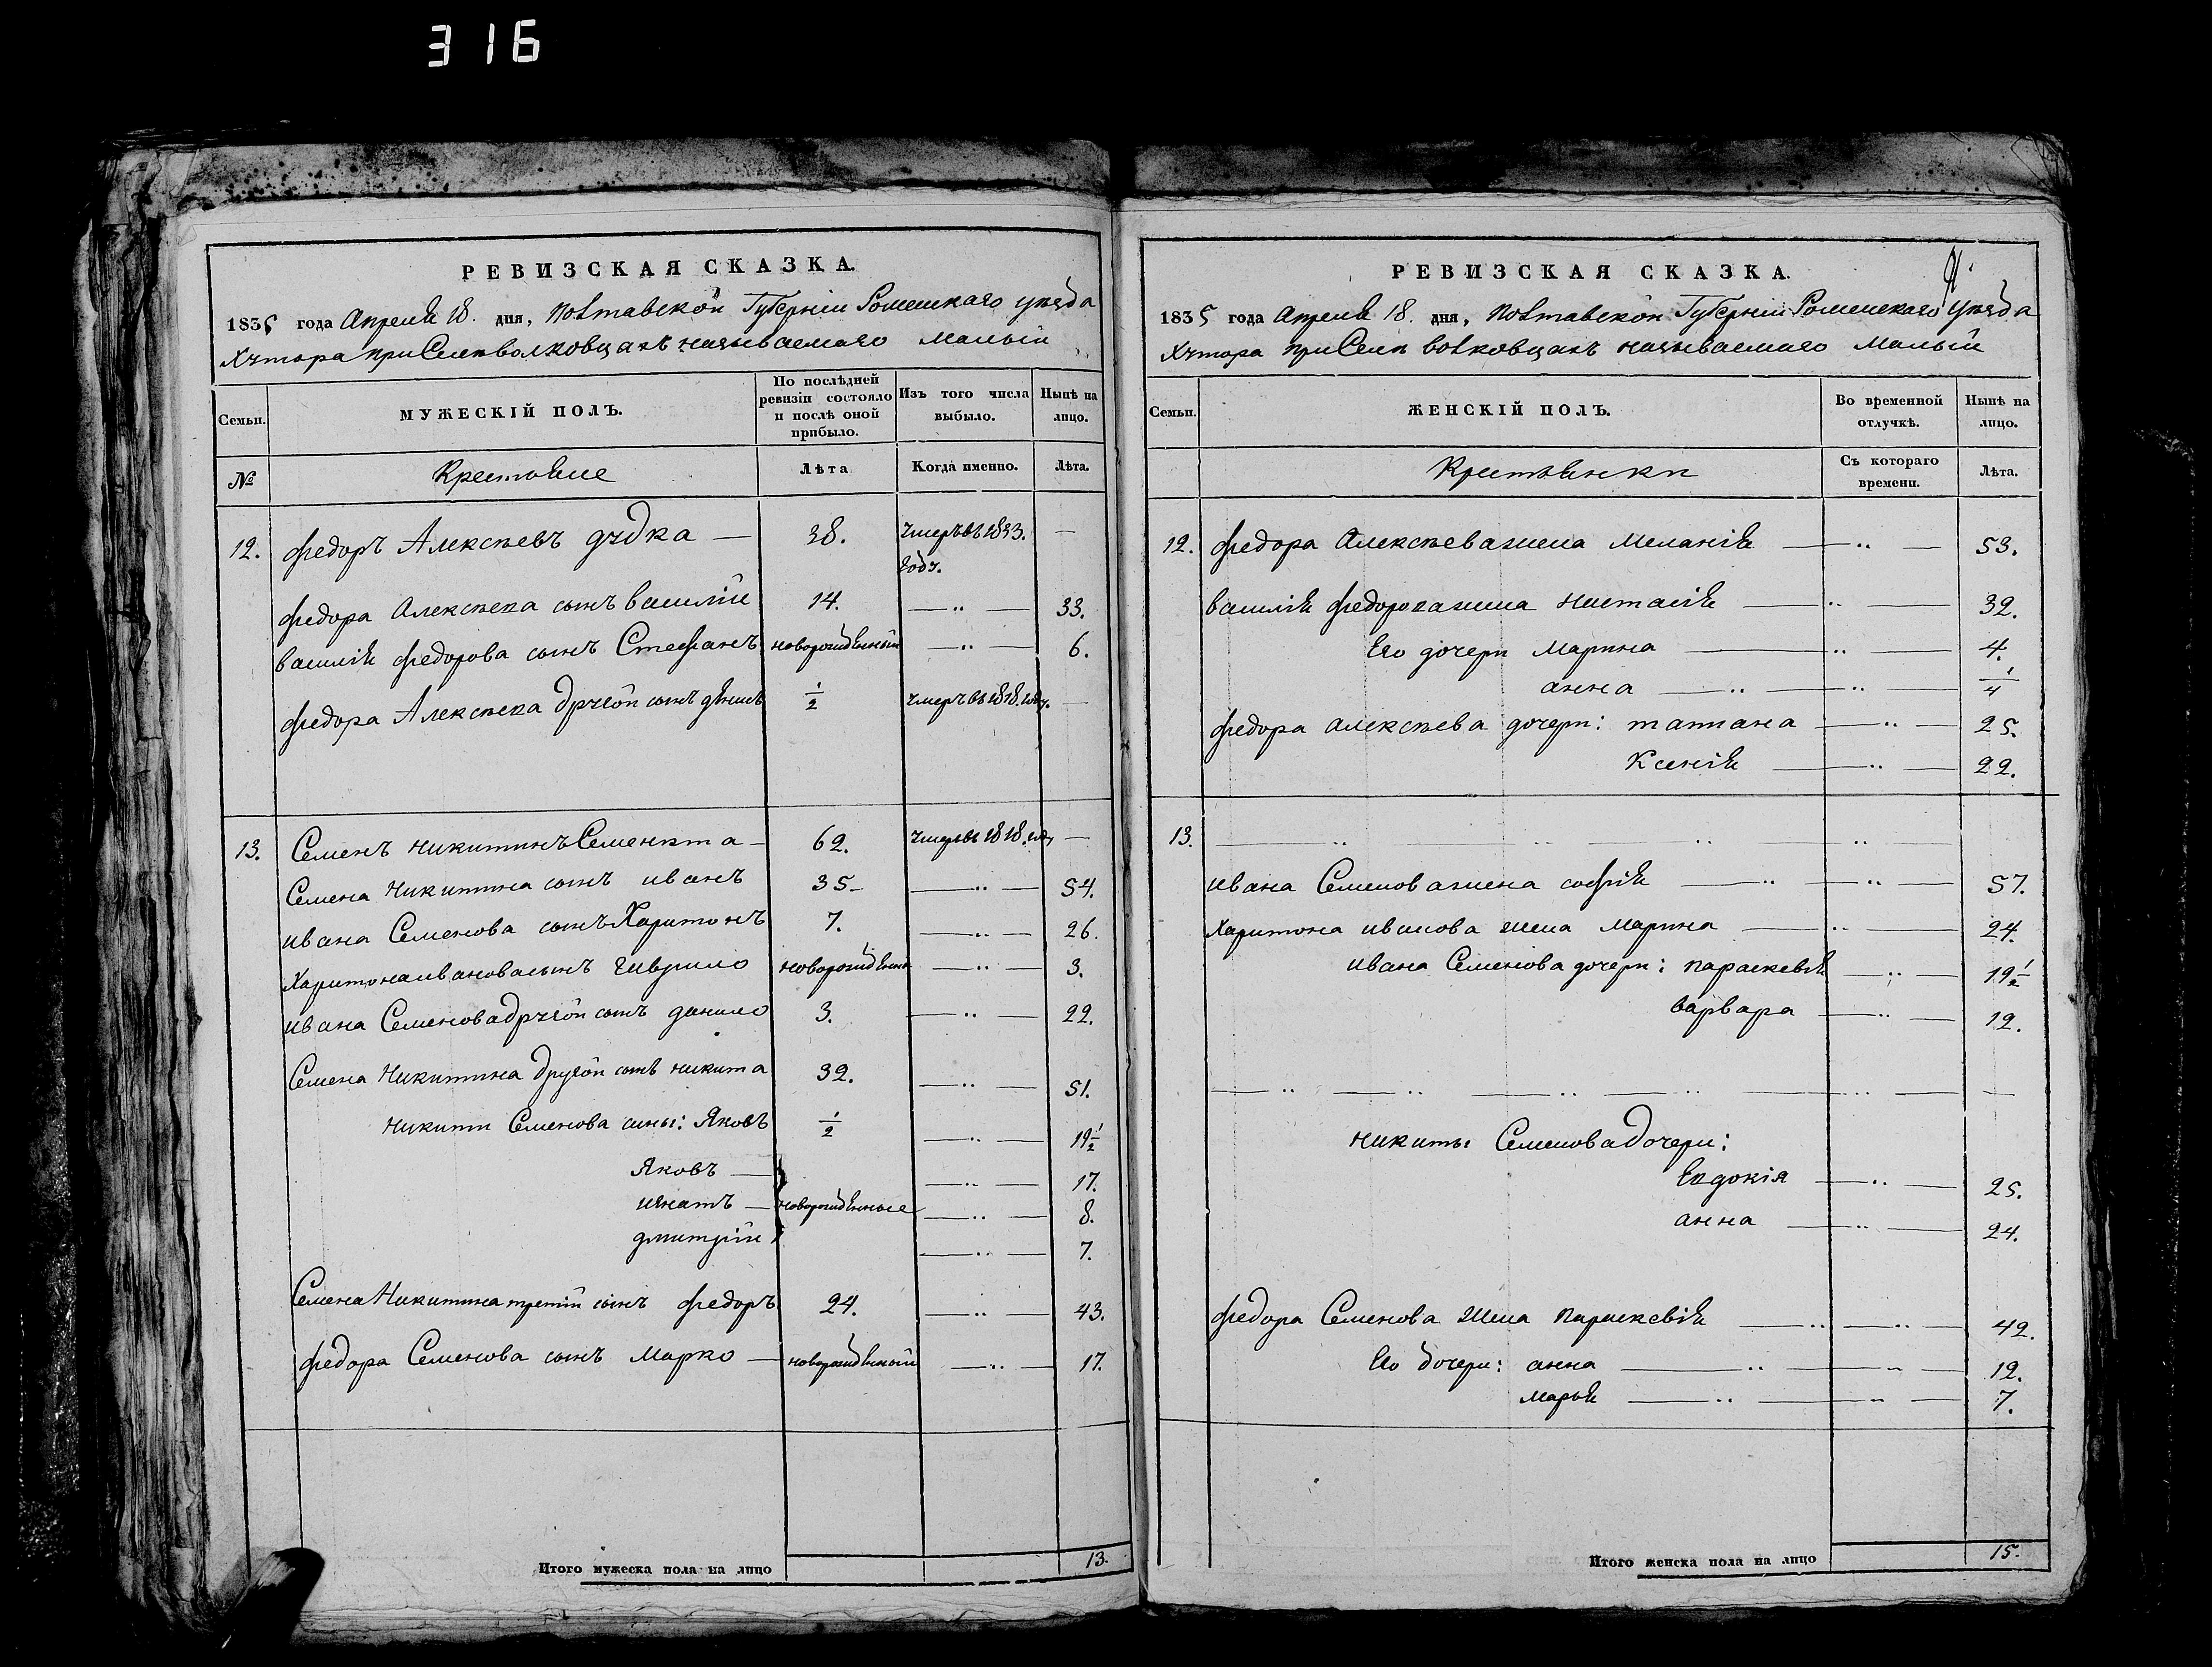 316
РЕВИЗСКАЯ СКАЗКА.
1835 года Апреля 18. дня, Полтавской Губерніи Роменскаго уѣзда
Хутора при Селѣ волковцахъ называемаго Малый
Семьи. МУЖЕСКІЙ ПОЛЪ. По послѣдней ревизіи состояло и послѣ оной прибыло. Изъ того числа выбыло. Нынѣ на лицо.
№ Крестьяне Лѣта Когда именно. Лѣта.
12. Федоръ Алексѣевъ дудка — 38. умеръ въ 1833. году. —
Федора Алексѣева сынъ василій 14. — " — 33.
василія федорова сынъ Стефанъ новорожденный — " — 6.
Федора Алексѣева другой сынъ 1/2 умеръ въ 1818. году. —
13. Семенъ никитинъ — 62. умеръ въ 1818. году —
Семена Никитина сынъ иванъ 35 — " — 54.
ивана Семенова сынъ Харитонъ 7. — " — 26.
Харитона иванова сынъ гаврило новорожденный — " — 3.
ивана Семенова другой сынъ данило 3. — " — 22.
Семена Никитина другой сынъ никита 32. — " — 51.
никиты Семенова сыны: Яковъ 1/2 — " — 19 1/2
Яковъ — — " — 17.
игнатъ — новорожденные — " — 8.
дмитрій — " — 7.
Семена Никитина третій сынъ федоръ 24. — " — 43.
федора Семенова сынъ Марко — новорожденный — " — 17.
Итого мужеска пола на лицо 13.
РЕВИЗСКАЯ СКАЗКА.
1835 года Апреля 18. дня, Полтавской Губерніи Роменскаго Уѣзда
Хутора при Селѣ волковцахъ называемаго Малый
Семьи. ЖЕНСКІЙ ПОЛЪ. Во временной отлучкѣ. Нынѣ на лицо.
Крестьянки Съ котораго времени. Лѣта.
12. федора Алексѣева жена Меланія — " — 53.
василія федорова жена настасія — " — 32.
Его дочери Марина — " — 4.
анна — " — " — 1/4
федора алексѣева дочери: татіана — " — 25.
Ксенія — " — 22.
13. — " — " — " — " —
ивана Семенова жена софія — " — " — 57.
Харитона иванова жена Марина — " — 24.
ивана Семенова дочери: параскевія — " — 19 1/2
варвара — " — 12.
— " — " — " — " — " — " — —
никиты Семенова дочери:
Евдокія — " — 25.
анна — " — 24.
федора Семенова жена параскевія — " — " — 42.
Его дочери: анна — " — " — 12.
марья — " — " — 7.
Итого женска пола на лицо 15.